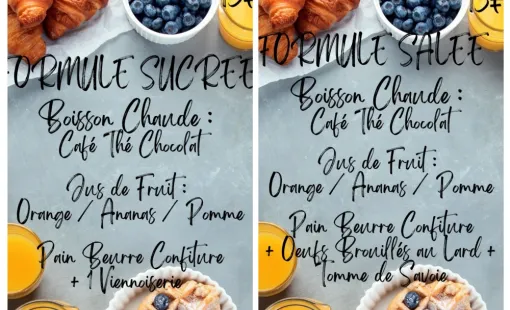 FORMULE SUCREE
Boisson Chaude :
Café Thé Chocolat
Jus de Fruit :
Orange / Ananas / Pomme
Pain Beurre Confiture
+ 1 Viennoiserie
FORMULE SALEE
Boisson Chaude :
Café Thé Chocolat
Jus de Fruit :
Orange / Ananas / Pomme
Pain Beurre Confiture
+ Oeufs Brouillés au Lard +
Tomme de Savoie